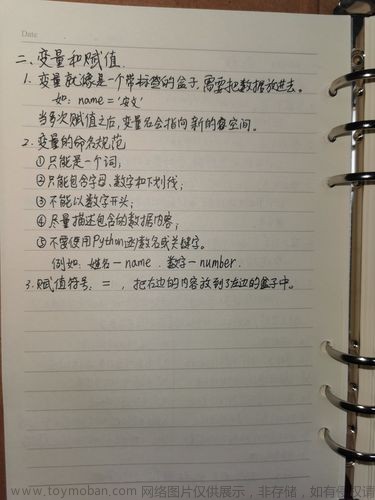 Date
二、变量和赋值.
1. 变量就像是一个带标签的盒子,需要把数据放进去。
如: name = '安文'
当多次赋值之后,变量名会指向新的容空间。
2. 变量的命名规范
① 只能是一个词;
② 只能包含字母、数字和下划线;
③ 不能以数字开头;
④ 尽量描述包含的数据内容;
⑤ 不要使用Python函数名或关键字。
例如: 姓名—name . 数字—number.
3. 赋值符号: = , 把右边的内容放到了左边的盒子中。
www.toymoban.com 网络图片仅供展示,非存储,如有侵权请